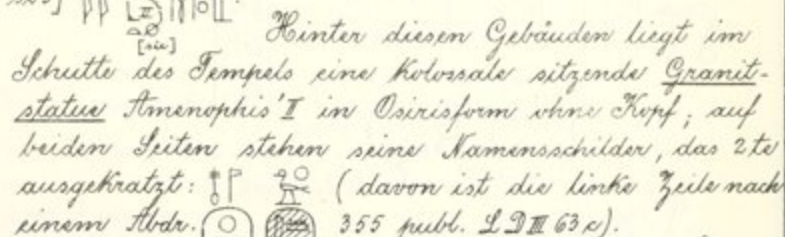 [sic]
Hinter diesen Gebäuden liegt im
Schutte des Tempels eine kolossale sitzende Granit-
statue Amenophis' II in Osirisform ohne Kopf; auf
beiden Seiten stehen seine Namensschilder, das 2te
ausgekratzt: ( davon ist die linke Zeile nach
einem Abdr. 355 publ. LD III 63 c).